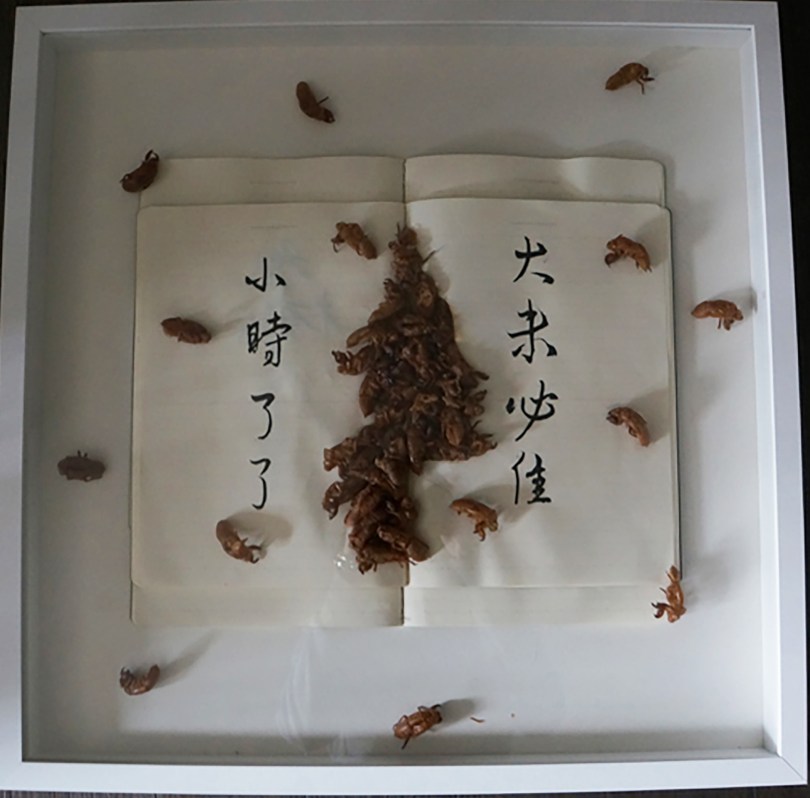 小時了了
大未必佳